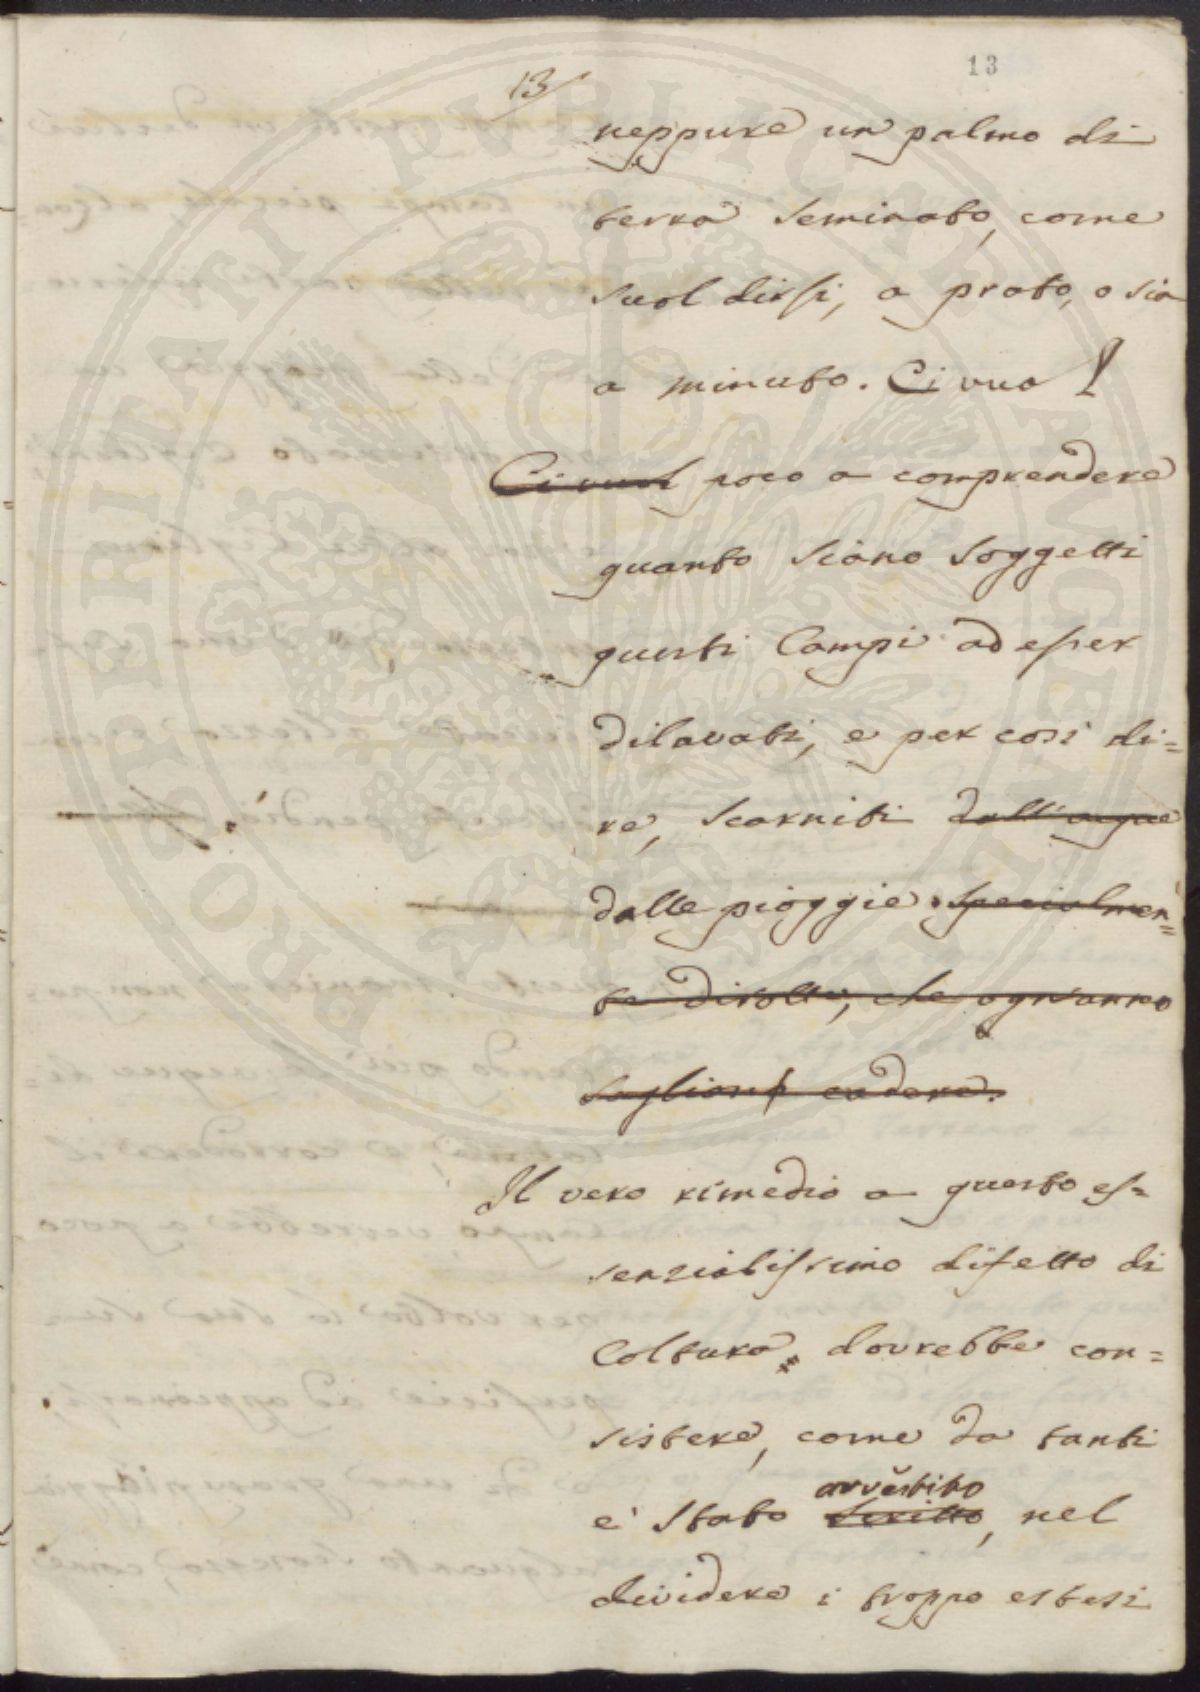 13
13
neppure un palmo di
terra seminato, come
suol dirsi, a prato, o sia
a minuto. Ci vuo
Ci vuol poco a comprendere
quanto siano soggetti
questi Campi ad esser
dilavati, e per così di=
re, scarniti dall'acque
dalle pioggie specialmen=
te dirotte, che ogn'anno
soglion cadere.
Il vero rimedio a questo es=
senzialissimo difetto di
Coltura, dovrebbe con=
sistere, come da tanti
avvertito
e' stato scritto, nel
dividere i troppo estesi
PROSPERITATI PVBLICAE AVGENDAE